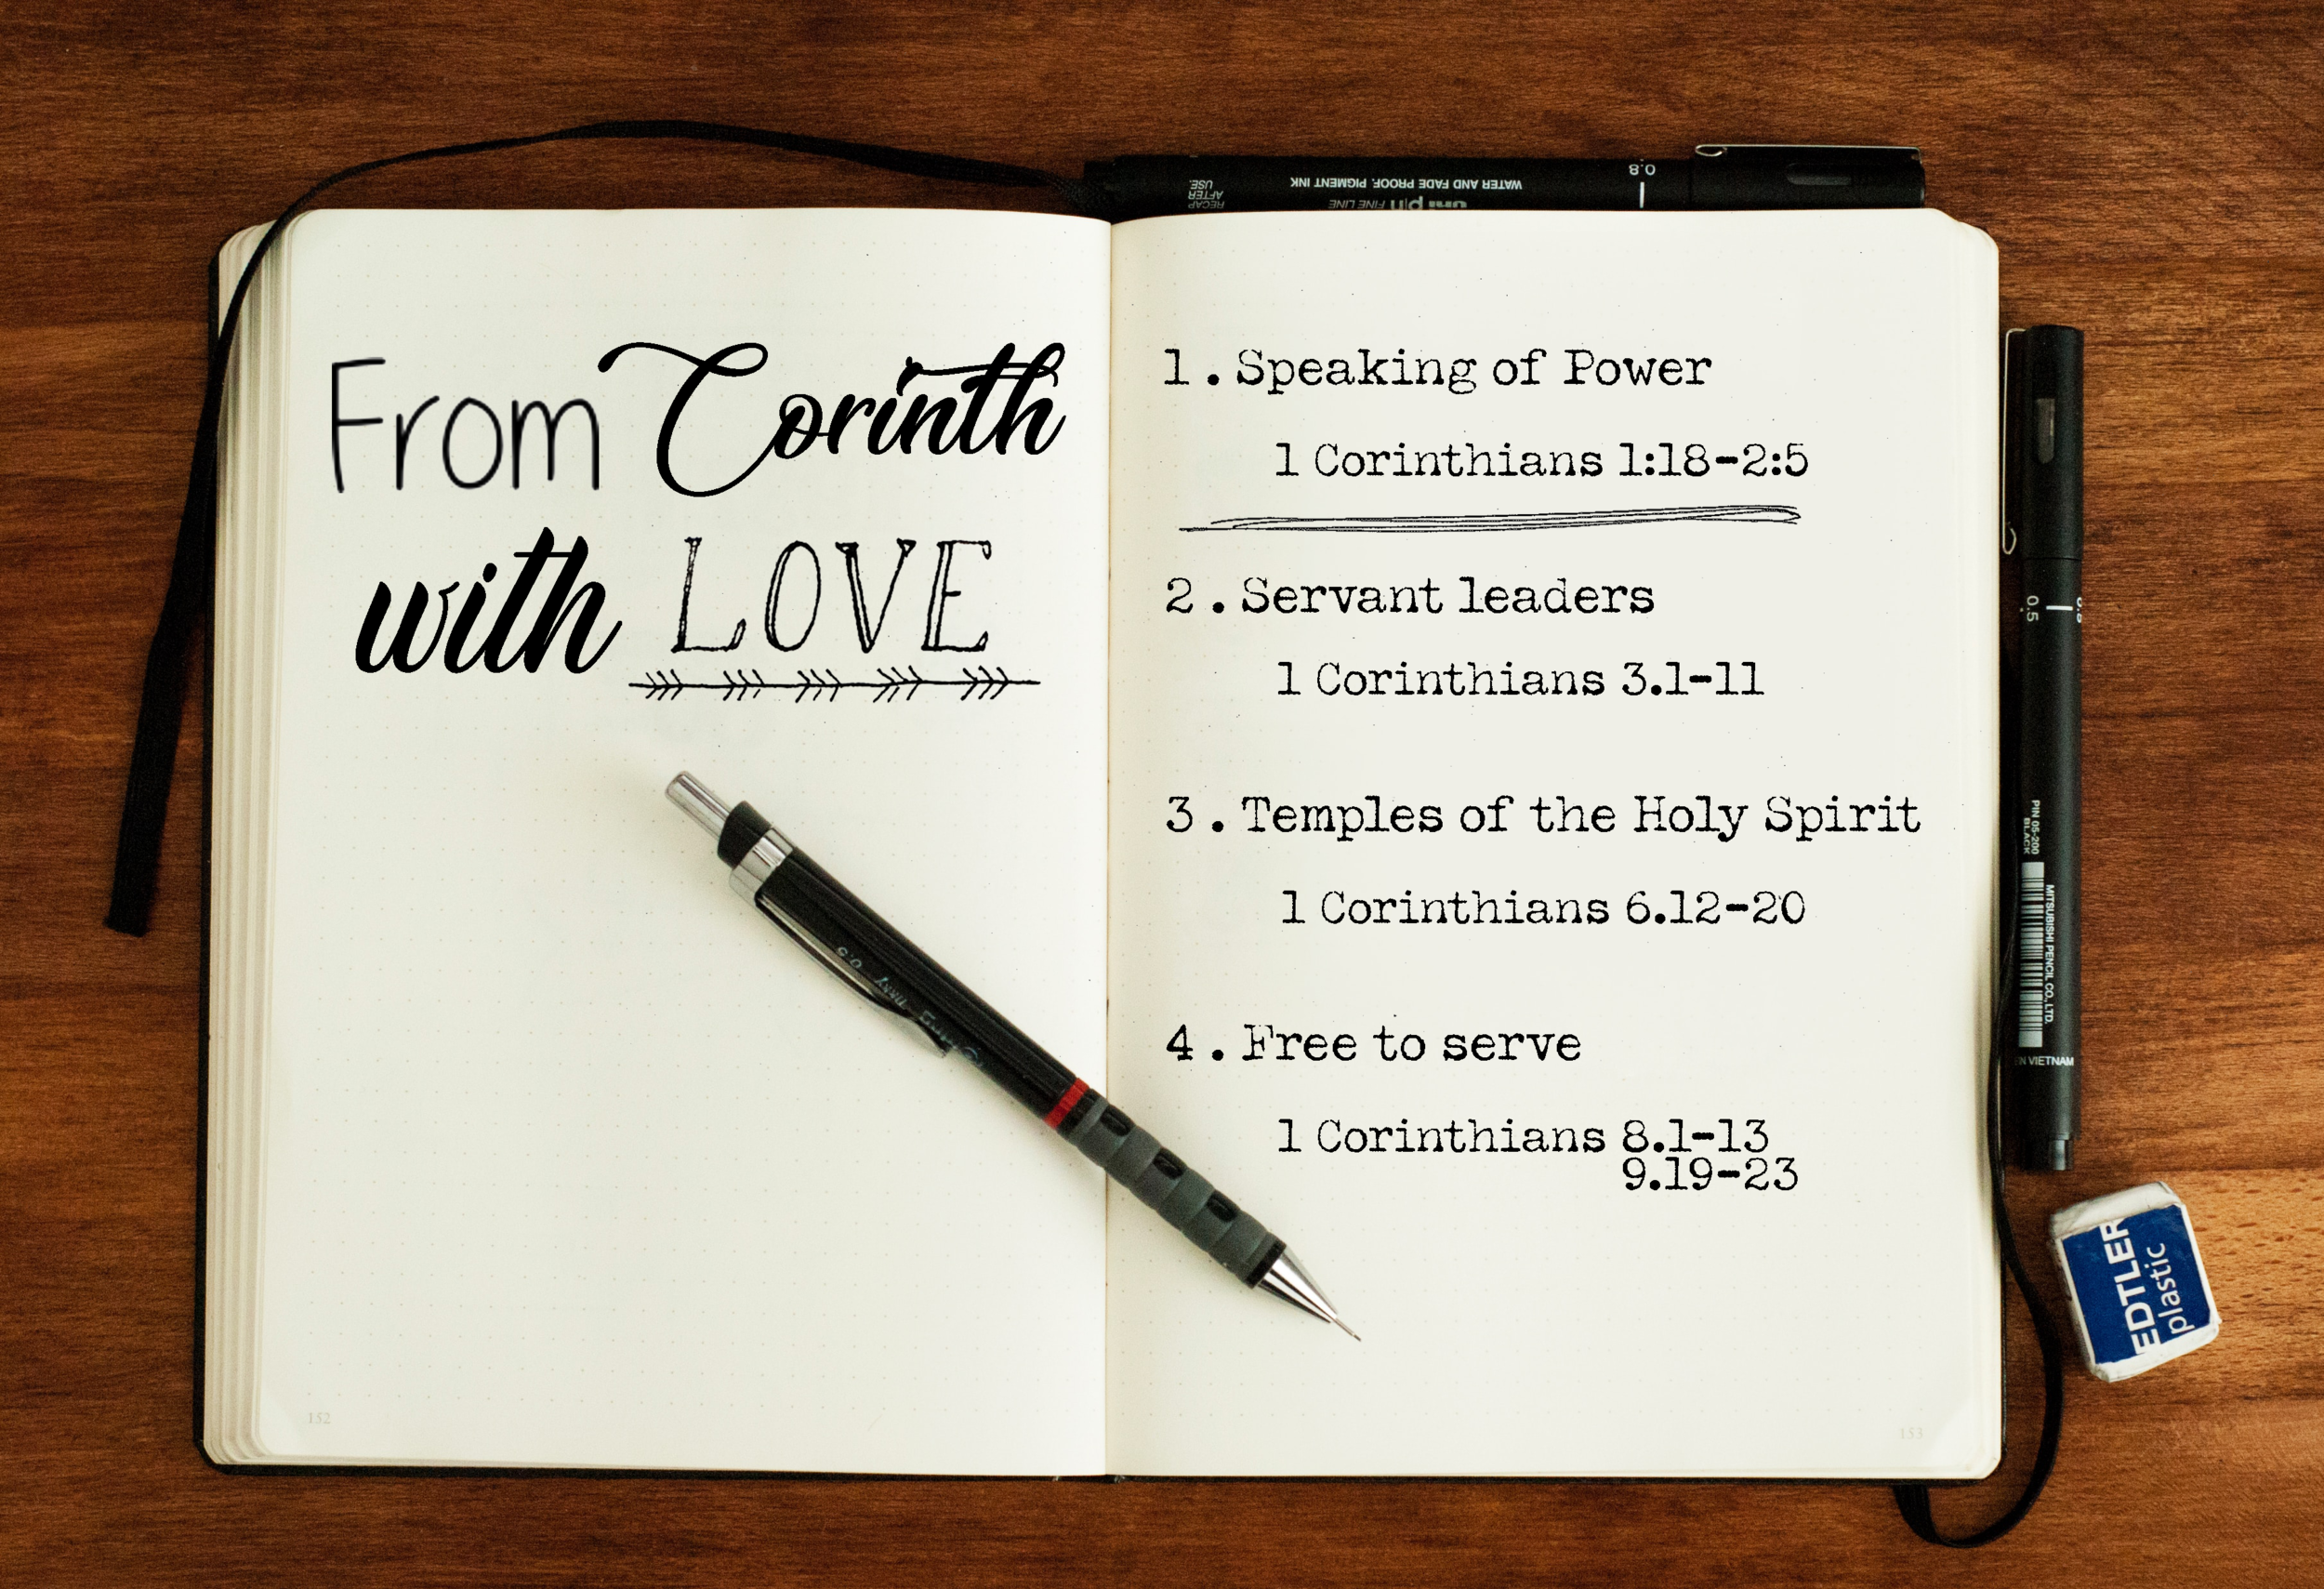 From Corinth
with LOVE
1. Speaking of Power
1 Corinthians 1:18-2:5
2. Servant leaders
1 Corinthians 3.1-11
3. Temples of the Holy Spirit
1 Corinthians 6.12-20
4. Free to serve
1 Corinthians 8.1-13
9.19-23
152
153
RECAP
AFTER
USE.
uni pin FINE LINE
WATER AND FADE PROOF, PIGMENT INK
0.8
0.5
PIN 05-200
BLACK
MITSUBISHI PENCIL CO., LTD.
IN VIETNAM
EDTLER
plastic
0.5